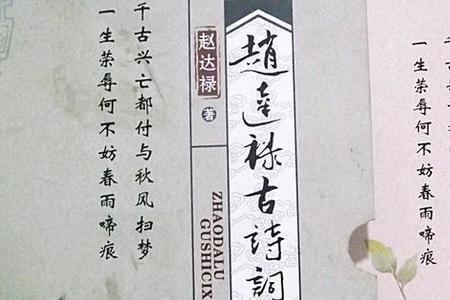 千古兴亡都付与秋风扫梦
一生荣辱何不妨春雨啼痕
赵达禄 著
趙達祿古詩詞
ZHAODALU
GUSHICIX
一生荣辱何不妨春雨啼痕